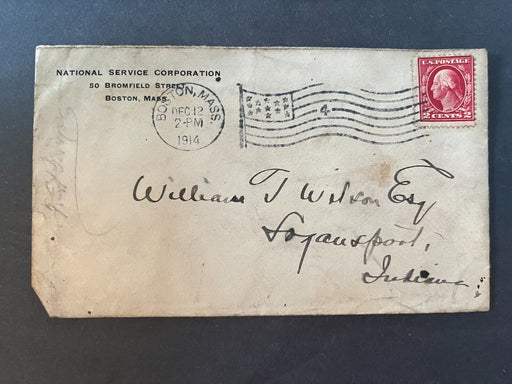 NATIONAL SERVICE CORPORATION
50 BROMFIELD STREET
BOSTON, MASS.
BOSTON, MASS.
DEC 12
2-PM
1914
4
U.S. POSTAGE
2 CENTS 2
William T Wilson Esq
Logansport,
Indiana